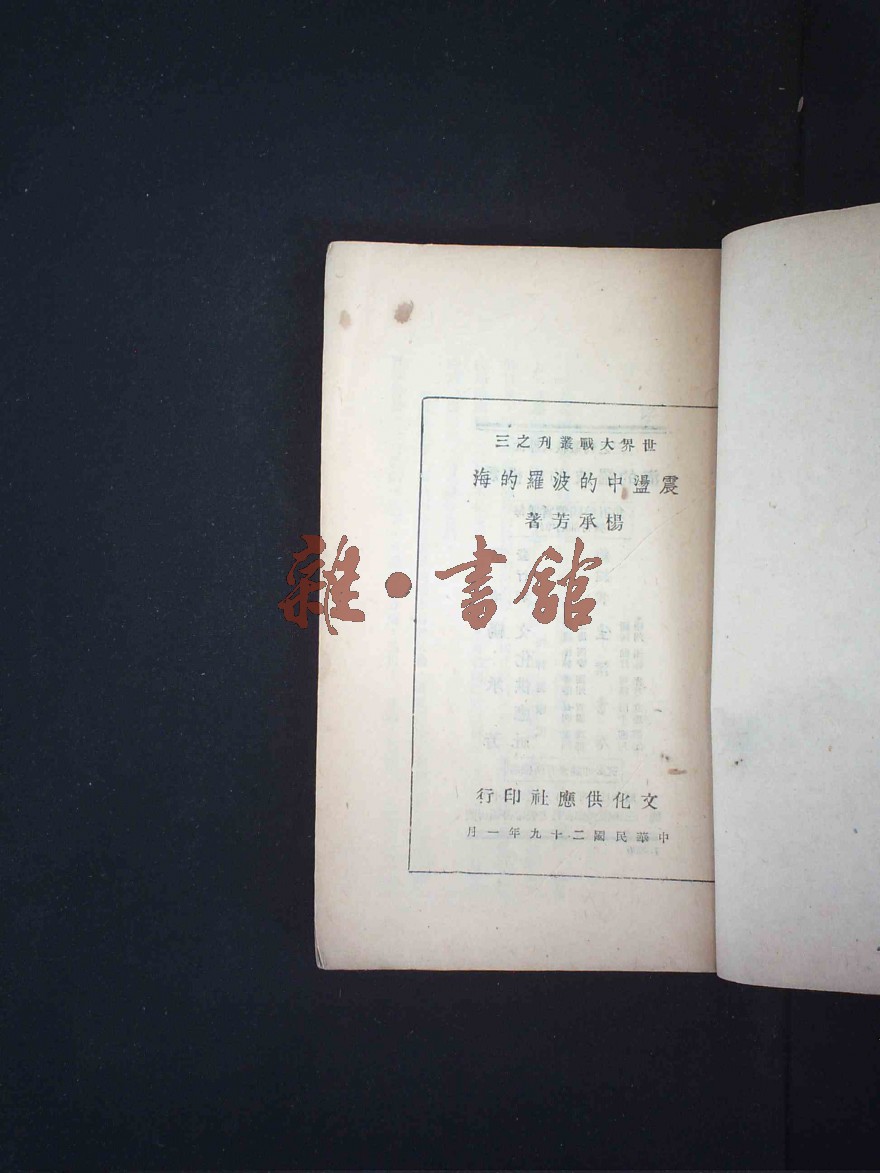 世界大戰叢刋之三
震盪中的波羅的海
楊承芳著
雜·書館
文化供應社印行
中華民國二十九年一月